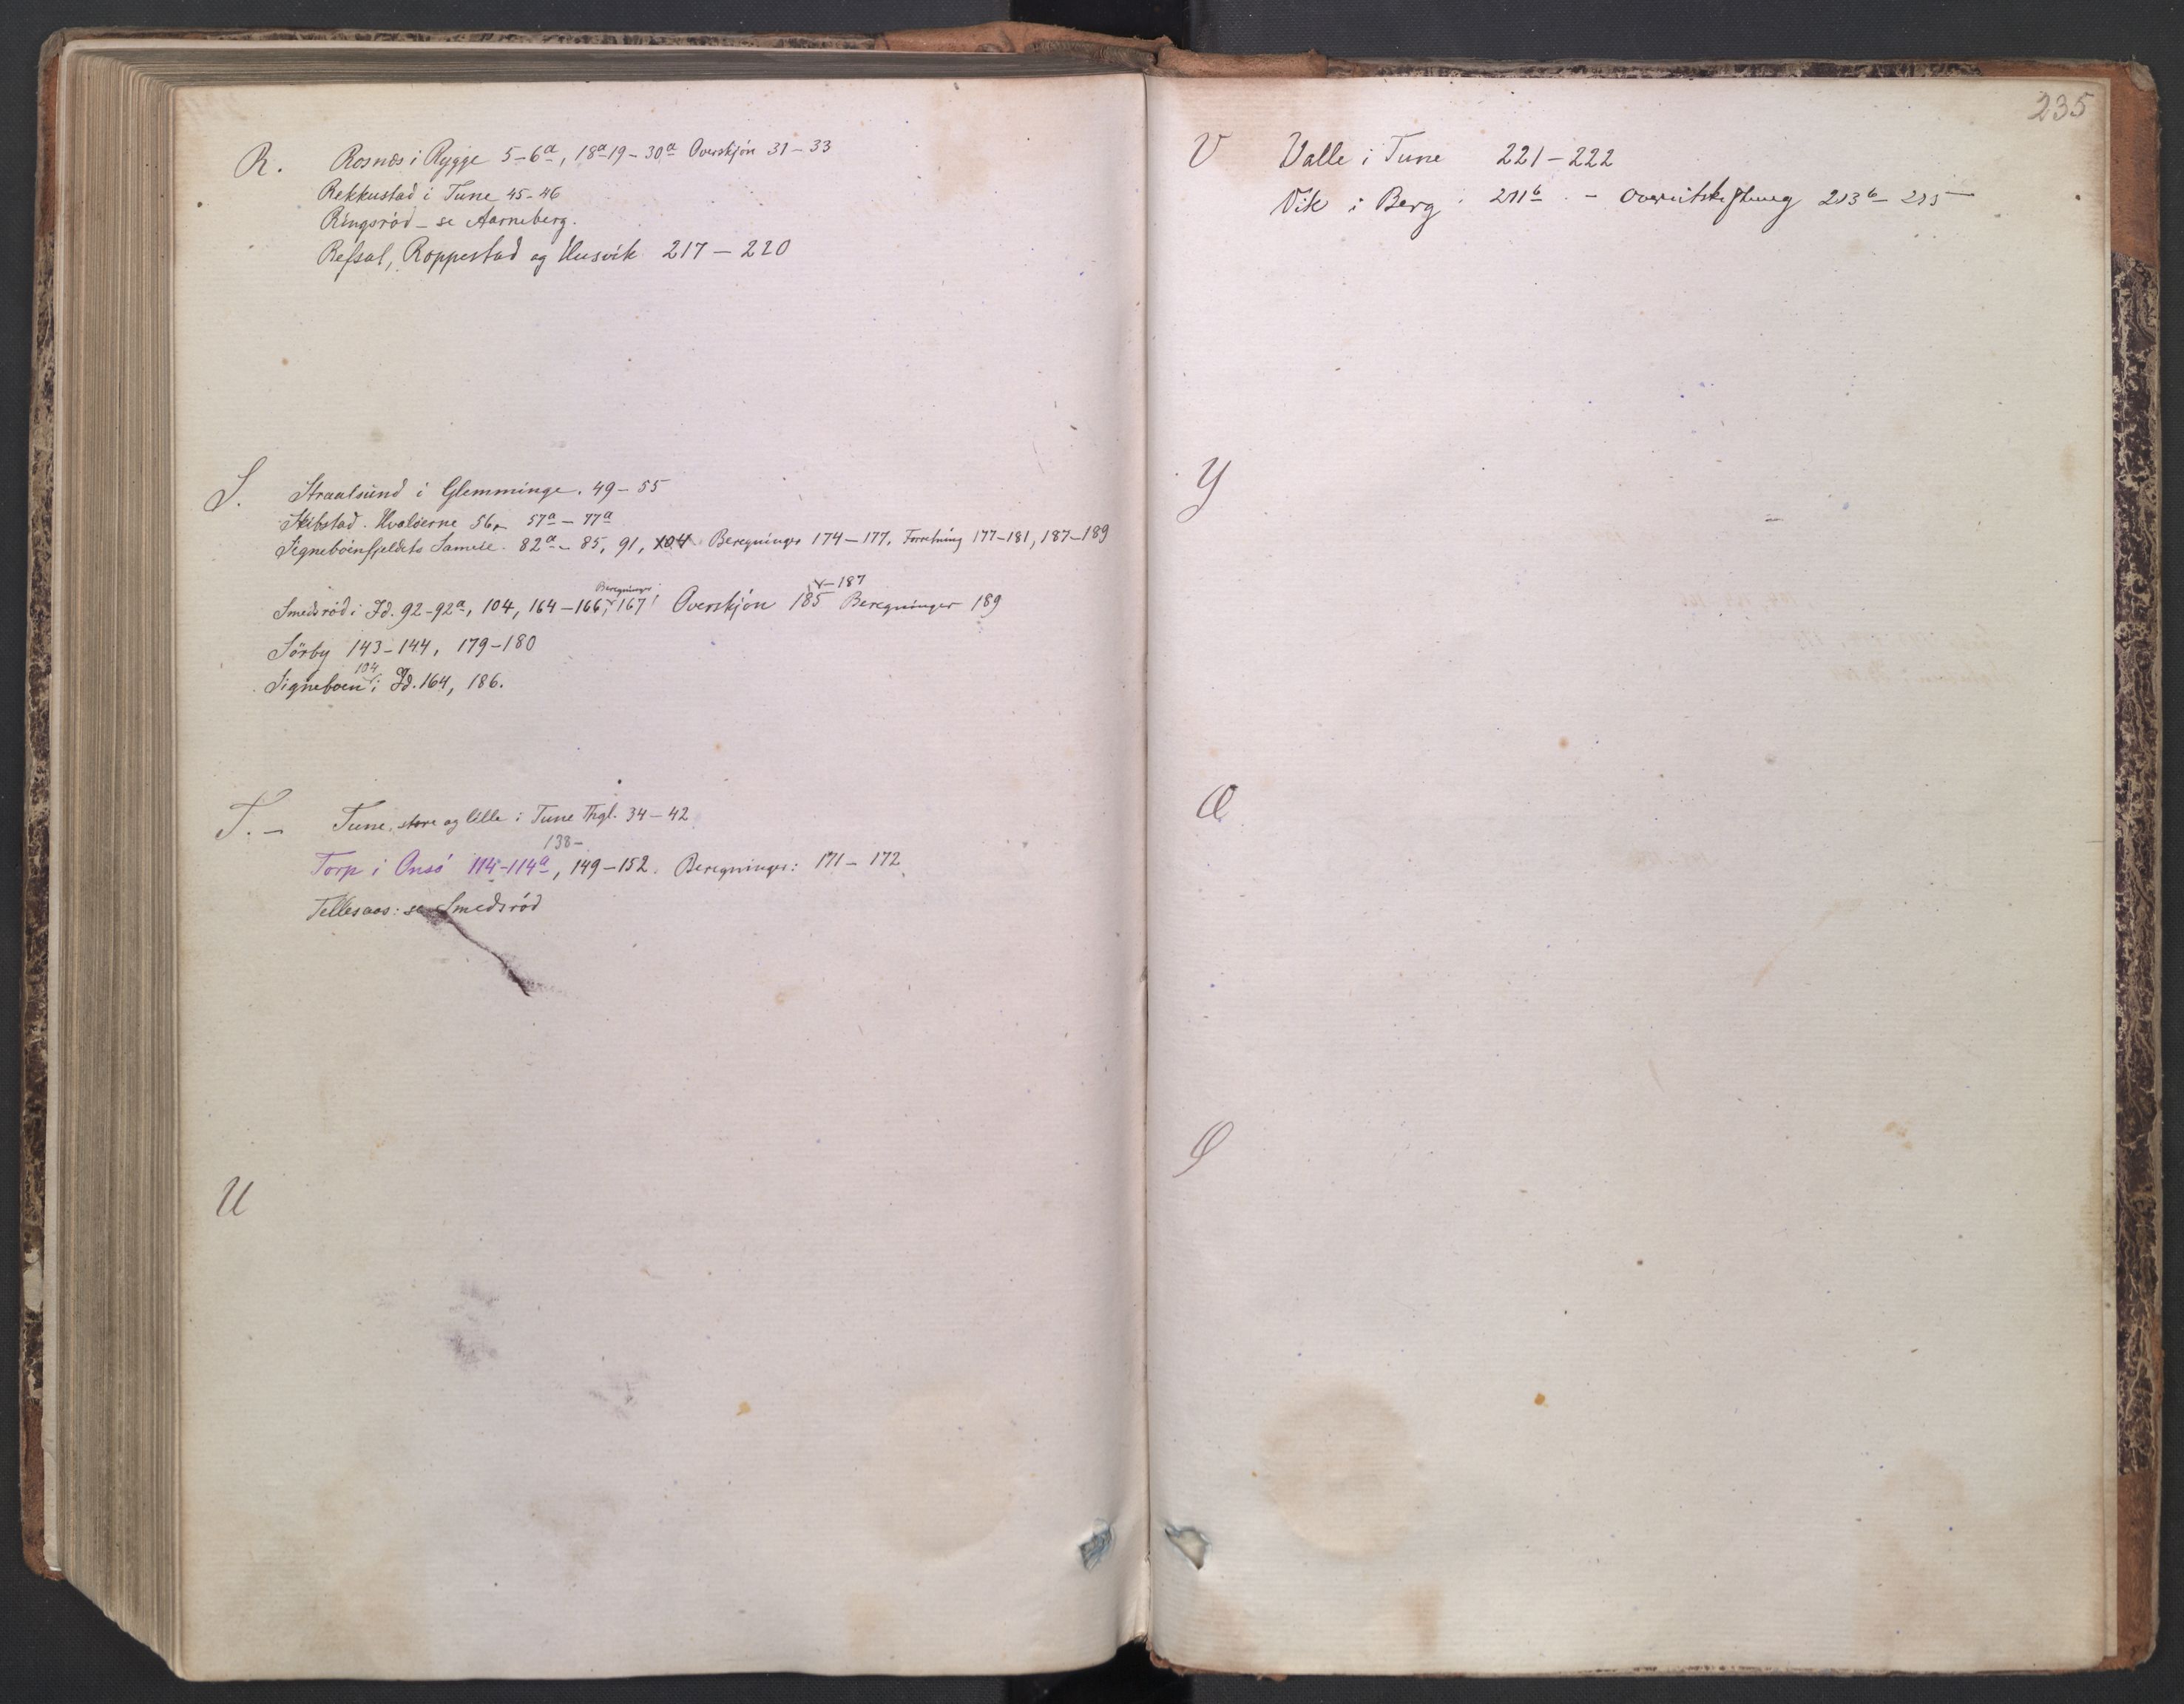 R. Rosnæs i Rygge 5-6a, 18a 19-30a Overskjön 31-33
Rekkustad i Tune 45-46
Ringsröd - se Aarneberg.
Refsal, Roppestad og Husvik 217-220
S. Straalsund i Glemminge. 49-55
Skibstad. Hvalöerne 56 57a-77a
Signeböenfjeldets Sameie. 82a-85, 91, 104 Beregninger 174-177, Forretning 177-181, 187-189
Beregninger -187
Smedsröd i Id. 92-92a, 104, 164-166, 167 Overskjön 185 Beregninger 189
Sörby 143-144, 179-180
104
Signeboen i Id. 164, 186.
T. - Tune, store og lille i Tune Thgl. 34-42
138-
Torp i Onsö 114-114a, 149-152. Beregninger: 171-172
Tellesaas: se Smedsröd
U
235
V Valle i Tune 221-222
Vik i Berg 211b - Overutskiftning 213b-215
Y
Æ
Ø